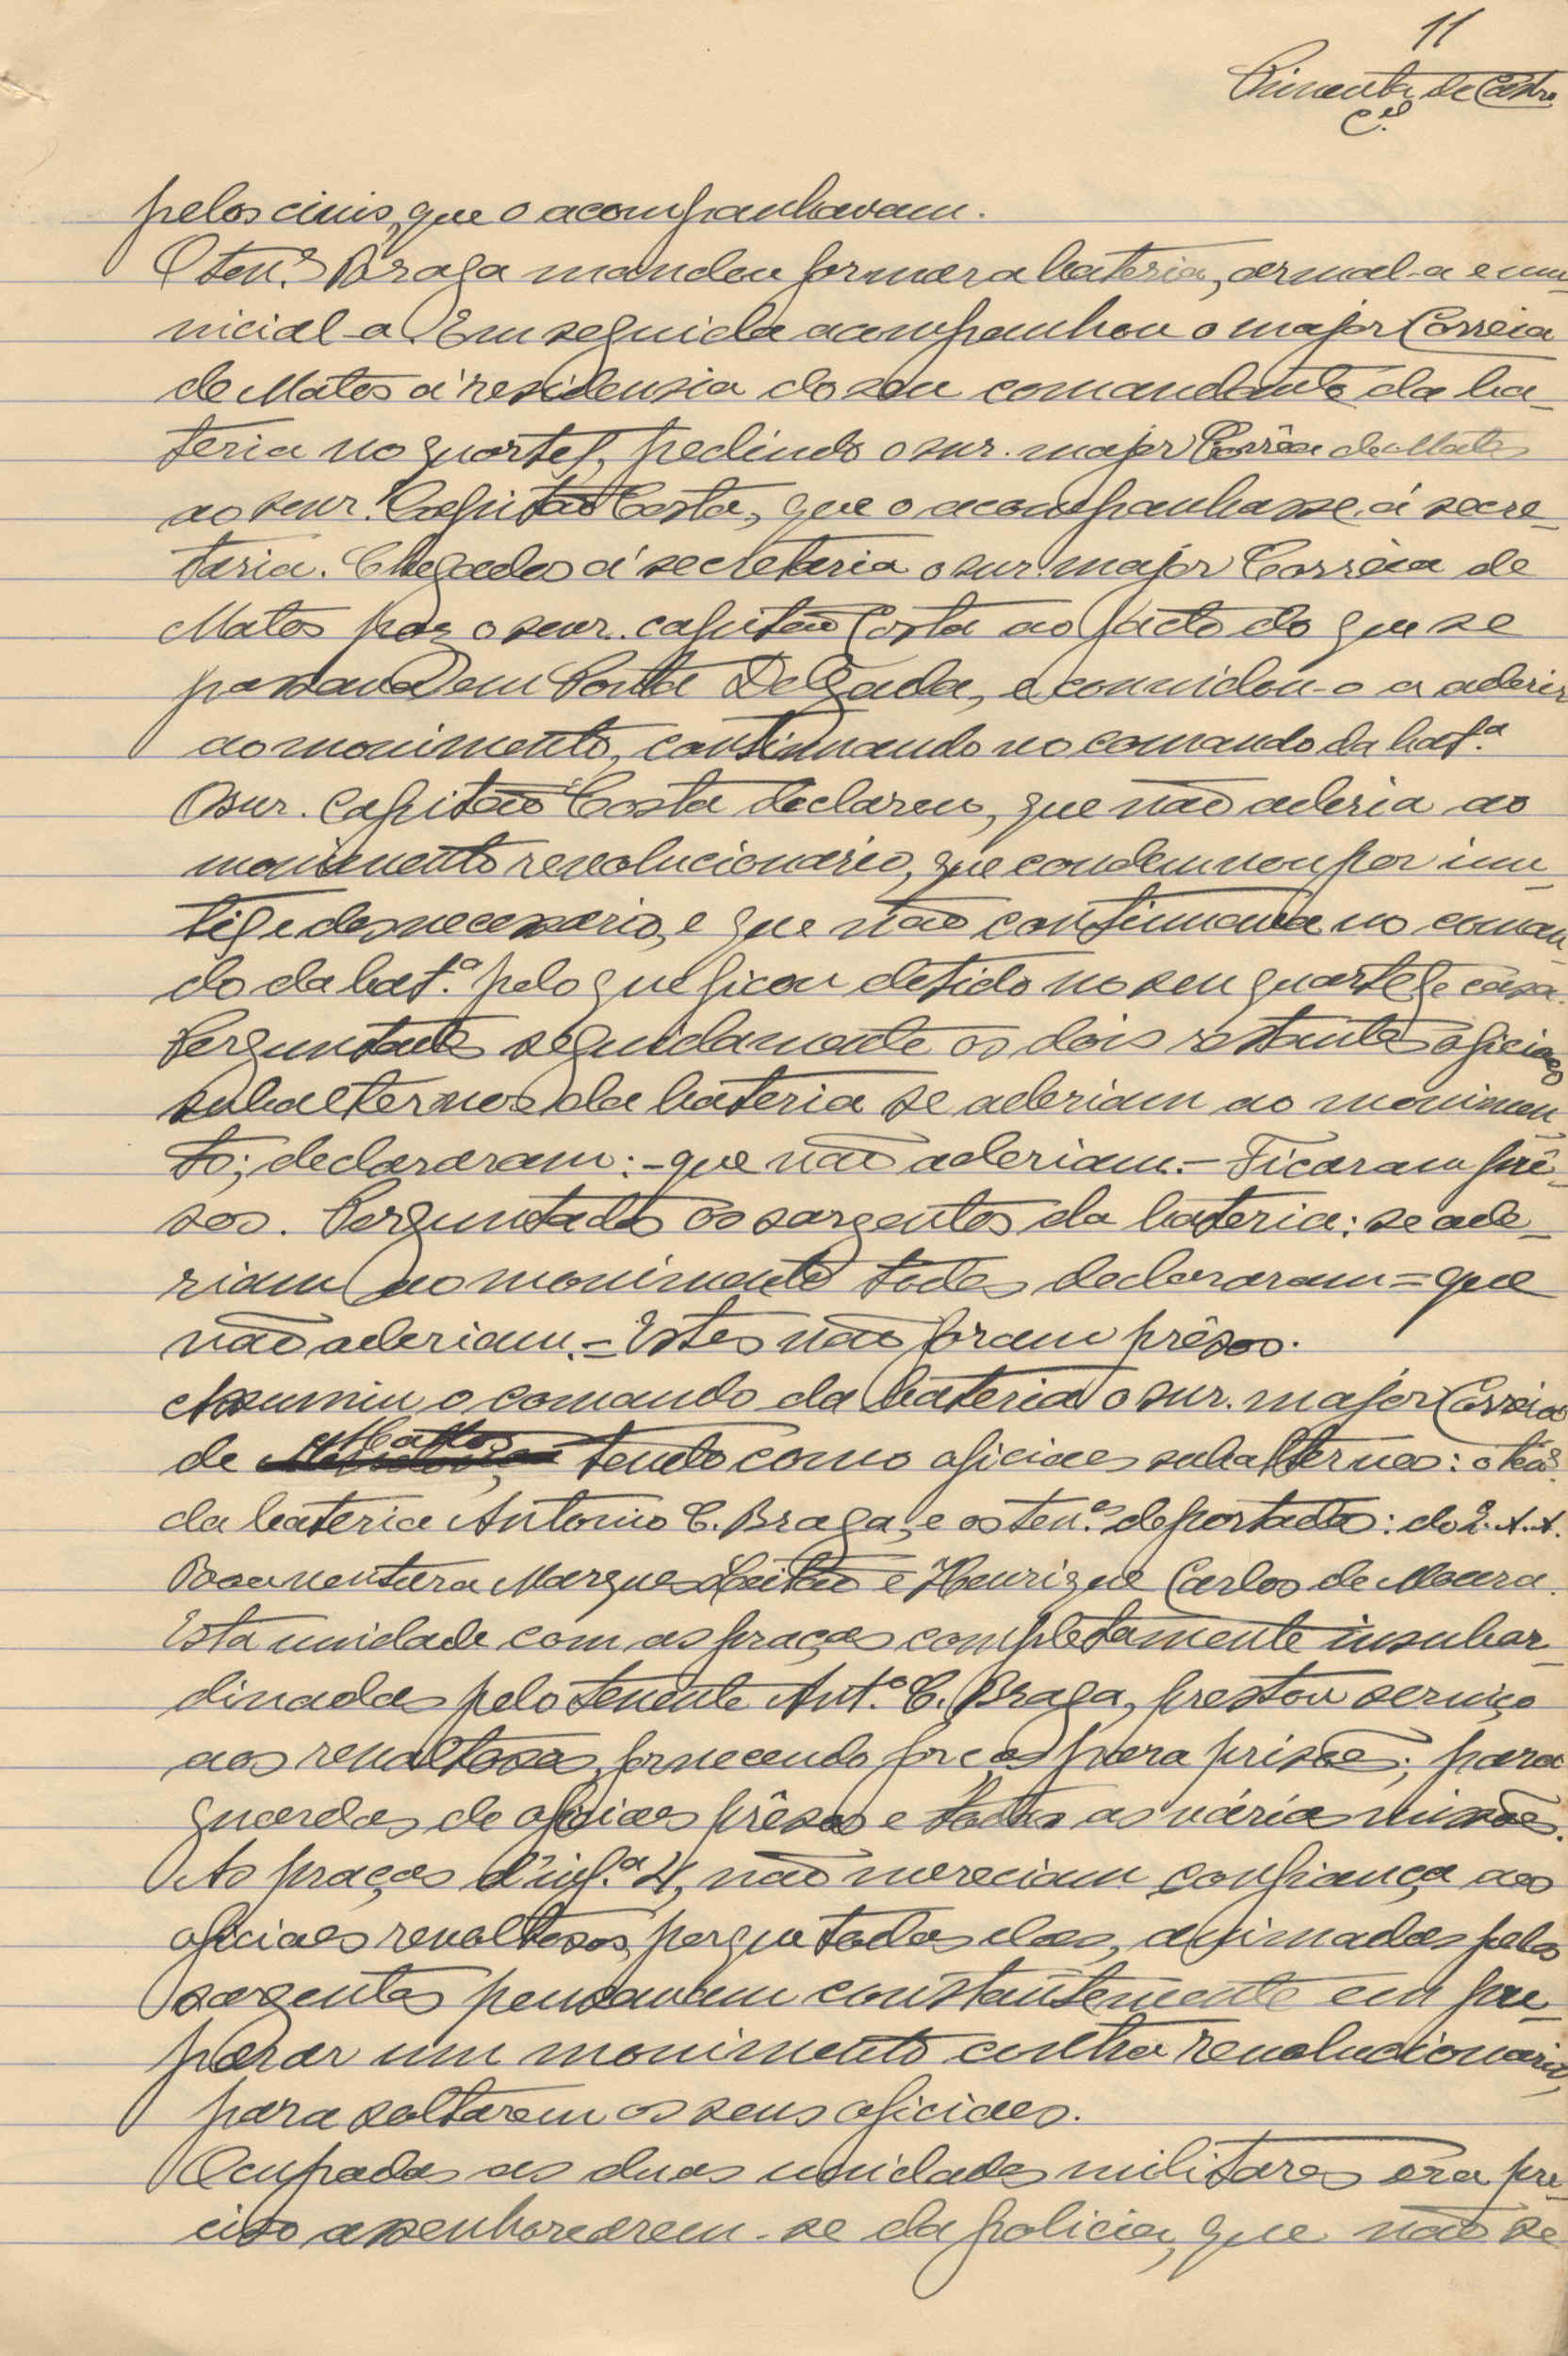 11
Pimenta de Castro
C.el
pelos civis, que o acompanhavam.
O ten.e Braga mandou formar a bateria, armal-a e mu-
nicial-a. Em seguida acompanhou o major Correia
de Matos á residensia do seu comandante da ba-
teria no quartel, pedindo o snr. major Corrêa de Matos
ao senr. Capitão Costa, que o acompanhasse á secre-
taria. Chegados á secretaria o snr. major Corrêia de
Matos poz o senr. capitão Costa ao facto do que se
passava em Ponta Delgada, e convidou-o a aderir
ao movimento, continuando no comando da bat.a
O snr. Capitão Costa declarou, que não aderia ao
movimento revolucionário, que condemnou por inu-
til e desnecessario, e que não continuava no coman-
do da bat.a pelo que ficou detido no seu quartel e casa.
Perguntado seguidamente os dois restantes oficiaes
subalternos da bateria se aderiam ao movimen-
to; declararam: - que não aderiam. - Ficaram prê-
sos. Perguntado os sargentos da bateria: se ade-
riam ao movimento todos declararam = que
não aderiam. = Estes não foram prêsos.
Assumiu o comando da bateria o snr. major Correia
de Mattos, tendo como oficiaes subalternos: o ten.e
da bateria Antonio C. Braga, e os ten.es deportados: do 2. A. A.
Boaventura Marques Leitão e Henrique Carlos de Moura.
Esta unidade com as praças completamente insubor-
dinadas pelo tenente Ant.o C. Braga, prestou serviço
aos revoltosos, fornecendo forças para prisões; para
guardas de oficiaes prêsos e todas as várias missões.
As praças d'inf.a 4, não mereciam confiança aos
oficiaes revoltosos, porque todas elas, animadas pelos
sargentos pensavam constantemente em pre-
parar um movimento contra revolucionario,
para soltarem os seus oficiaes.
Ocupadas as duas unidades militares era pre-
ciso assenhorearem-se da policia, que não se